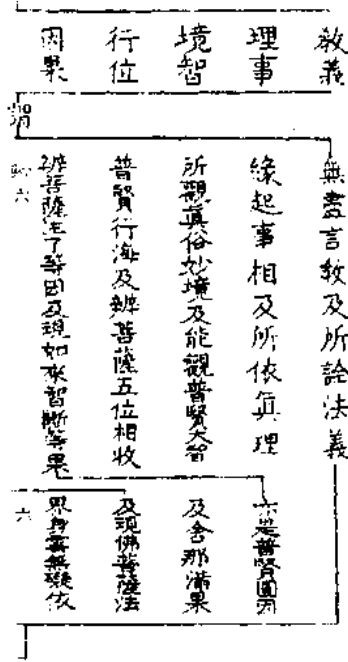 教義
理事
境智
行位
因果
無盡言教及所詮法義
緣起事相及所依眞理
所觀眞俗妙境及能觀普賢大智
普賢行海及辨菩薩五位相收
辨菩薩生了等因及現如來智斷等果
六
亦是普賢圓因
及舍那滿果
及現佛菩薩法
界身雲無礙依
六